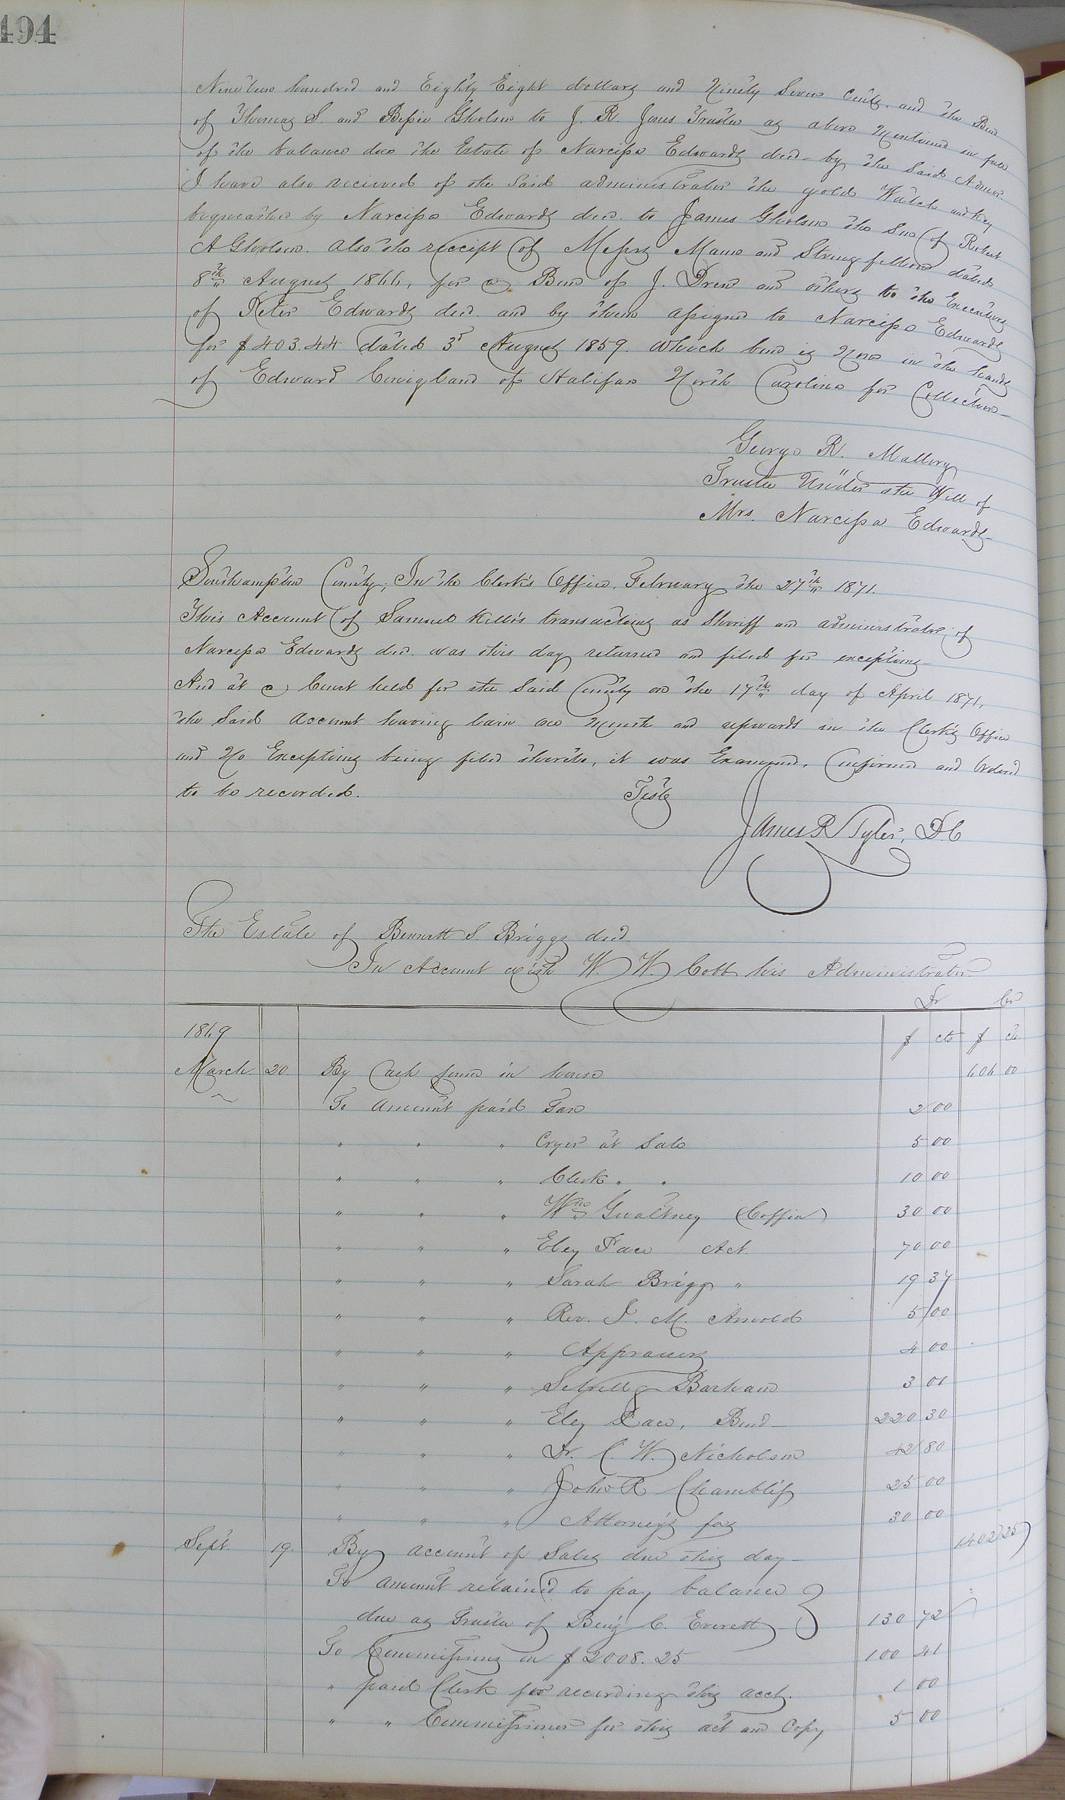 494
Nineteen hundred and Eighty Eight dollars and Ninety Seven Cents. and the Bond
of Thomas S. and Bessie Gholson to J. R. Jones Trustee as above Mentioned in full
of the balance due the Estate of Narcissa Edwards decd. by the Said Admor.
I have also received of the Said administrator the gold Watch and Key
bequeathed by Narcissa Edwards decd. to James Gholson the Son of Robert
A Gholson. also the receipt of Messrs Mann and Stringfellow dated
8th August 1866, for a Bond of J. Drew and others to the Executors
of Peter Edwards decd. and by them assigned to Narcissa Edwards
for $403.44 dated 3d August 1859. which bond is Now in the hands
of Edward Conigland of Halifax North Carolina for Collection
George R. Mallory
Trustee Under the Will of
Mrs. Narcissa Edwards
Southampton County; In the Clerk's Office February the 27th 1871.
This Account of Samuel Kello's transactions as Sheriff and administrator of
Narcissa Edwards decd. was this day returned and filed for exceptions
And at a Court held for the Said County on the 17th day of April 1871,
the Said account having lain one Month and upwards in the Clerk's Office
and No Exceptions being filed thereto, it was Examined, Confirmed and Ordered
to be recorded. Teste
James R Tyler, DC
The Estate of Bennett S. Briggs decd
In Account with W. W. Cobb his Administrator
Dr Cr
1869 $ cts $ Cts
March 20 By Cash found in house 606 00
To amount paid Tax 2 00
" " " Cryer at Sale 5 00
" " " Clerk " " 10 00
" " " Wm Gwaltney (Coffin) 30 00
" " " Eley Pace Act. 70 00
" " " Sarah Briggs " 19 37
" " " Rev. J. M. Arnold 5 00
" " " Appraisers 4 00
" " " Barham 3 00
" " " Eley Pace, Bond 220 30
" " " Dr. C. W. Nicholson 42 80
" " " John R Chambliss 25 00
" " " Attorney's fee 30 00
Sept. 19 By account of Sales due this day 1402 25
To amount retained to pay balance
due as Trustee of Benj C. Everett 130 72
To Commissions on $2008.25 100 41
" paid Clerk for recording this acct. 1 00
" " Commissioner for this act and Copy 5 00